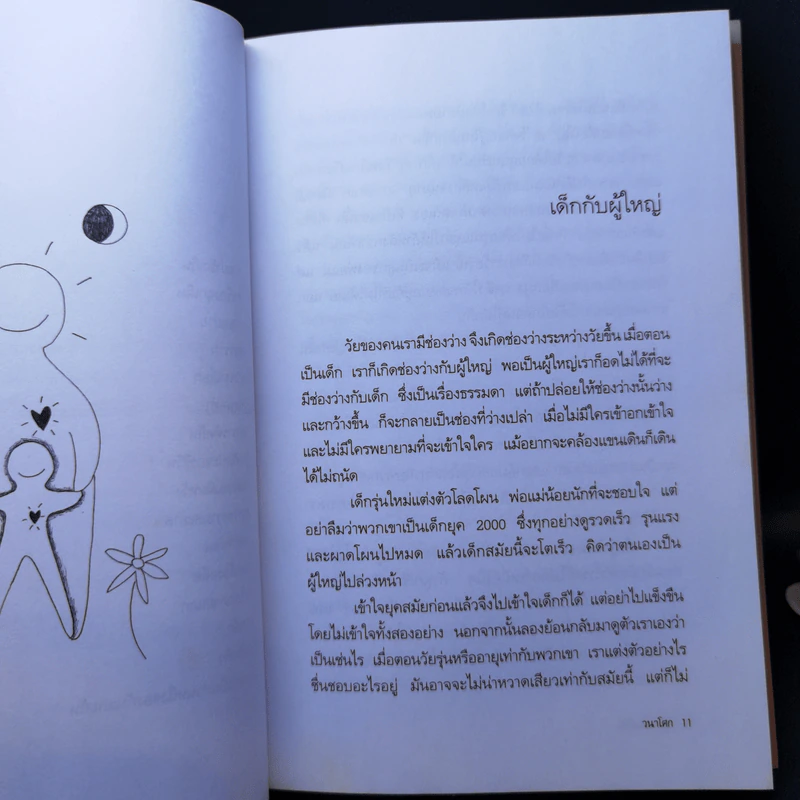 เด็กกับผู้ใหญ่
วัยของคนเรามีช่องว่าง จึงเกิดช่องว่างระหว่างวัยขึ้น เมื่อตอน
เป็นเด็ก เราก็เกิดช่องว่างกับผู้ใหญ่ พอเป็นผู้ใหญ่เราก็อดไม่ได้ที่จะ
มีช่องว่างกับเด็ก ซึ่งเป็นเรื่องธรรมดา แต่ถ้าปล่อยให้ช่องว่างนั้นว่าง
และกว้างขึ้น ก็จะกลายเป็นช่องที่ว่างเปล่า เมื่อไม่มีใครเข้าอกเข้าใจ
และไม่มีใครพยายามที่จะเข้าใจใคร แม้อยากจะคล้องแขนเดินก็เดิน
ได้ไม่ถนัด
เด็กรุ่นใหม่แต่งตัวโลดโผน พ่อแม่น้อยนักที่จะชอบใจ แต่
อย่าลืมว่าพวกเขาเป็นเด็กยุค 2000 ซึ่งทุกอย่างดูรวดเร็ว รุนแรง
และผาดโผนไปหมด แล้วเด็กสมัยนี้จะโตเร็ว คิดว่าตนเองเป็น
ผู้ใหญ่ไปล่วงหน้า
เข้าใจยุคสมัยก่อนแล้วจึงไปเข้าใจเด็กก็ได้ แต่อย่าไปแข็งขืน
โดยไม่เข้าใจทั้งสองอย่าง นอกจากนั้นลองย้อนกลับมาดูตัวเราเองว่า
เป็นเช่นไร เมื่อตอนวัยรุ่นหรืออายุเท่ากับพวกเขา เราแต่งตัวอย่างไร
ชื่นชอบอะไรอยู่ มันอาจจะไม่น่าหวาดเสียวเท่ากับสมัยนี้ แต่ก็ไม่
วนาโศก 11